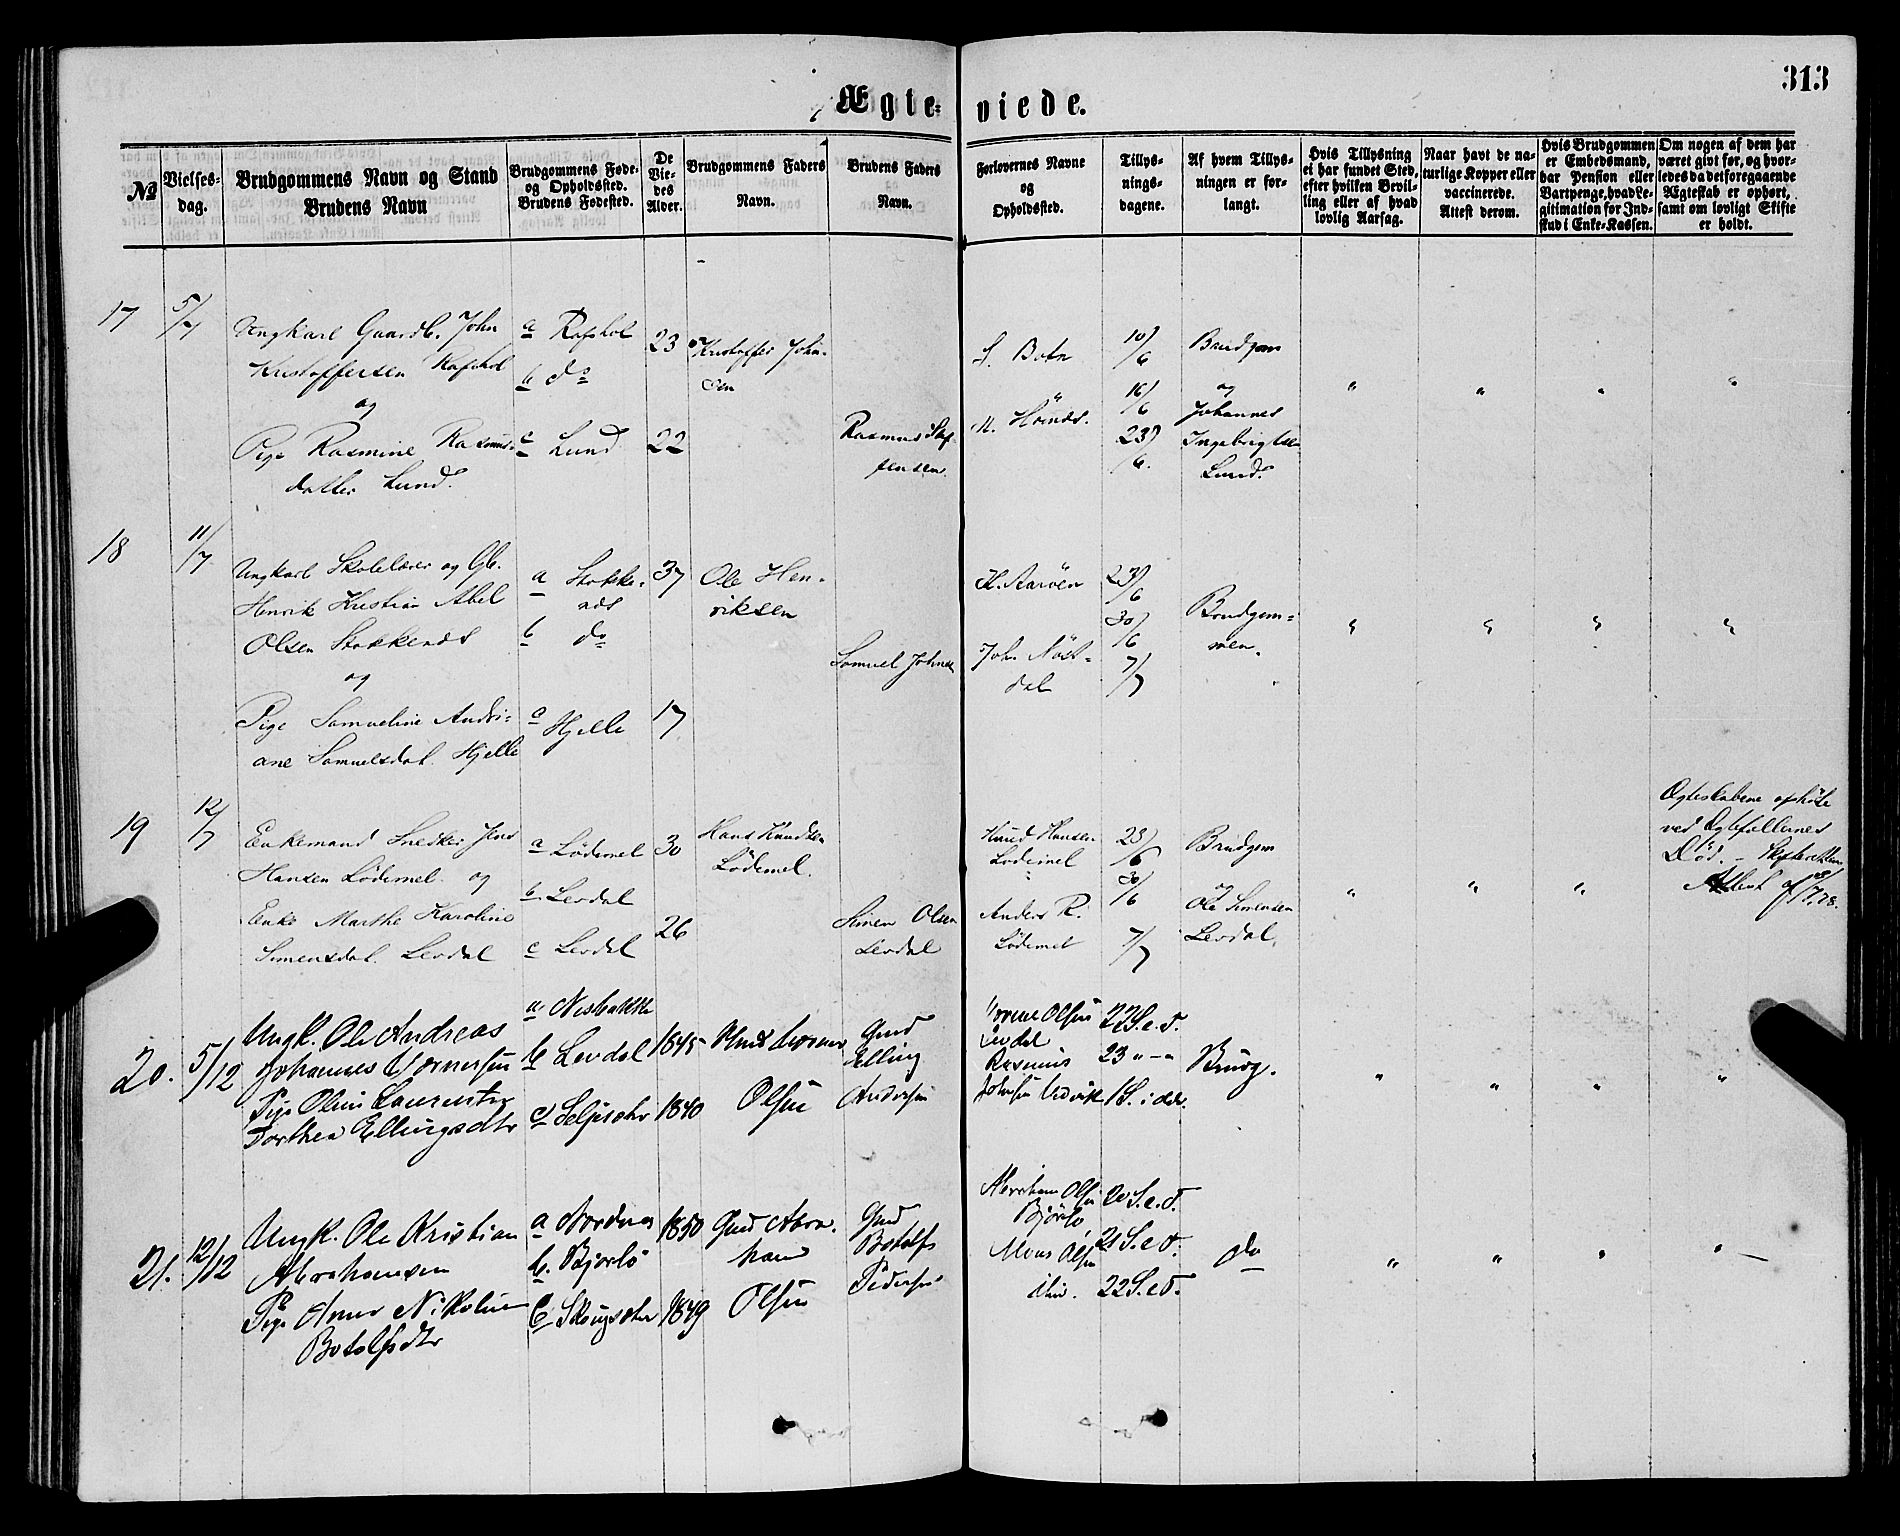 313
Ægte-
viede.
№
Vielses-
dag.
Brudgommens Navn og Stand
Brudens Navn
Brudgommens Føde-
og Opholdssted.
Brudens Fødested.
De
Vie-
des
Alder.
Brudgommens Faders
Navn.
Brudens Faders
Navn.
Forlovernes Navne
og
Opholdssted.
Tillys-
nings-
dagene.
Af hvem Tillys-
ningen er for-
langt.
Hvis Tillysning
ei har fundet Sted,
efter hvilken Bevil-
ling eller af hvad
lovlig Aarsag.
Naar havt de na-
turlige Kopper eller
vaccinerede.
Attest derom.
Hvis Brudgommen
er Embedsmand,
har Pension eller
Vartpenge, hvad Le-
gitimation for Ind-
skud i Enke-Kassen.
Om nogen af dem har
været givt før, og hvor-
ledes da det foregaaende
Ægteskab er ophørt,
samt om lovligt Skifte
er holdt.
17
5/7
Ungkarl Gaardb. John
Kristoffersen
og
Pige Rasmine Rasmus-
datter Lund.
a
b do
c Lund
23
22
Kristoffer John-
sen
Rasmus
S. Botn
M.
10/6
16/6
23/6.
Brudgom
og
Johannes
Ingebrigtsen
Lund.
" " " "
18
11/7
Ungkarl Skolelærer og Gb.
Henrik Kristian Abel
Olsen
og
Pige Samueline Andri-
ane Samuelsdat. Hjelle
a
b do
c Hjelle
37
17
Ole Hen-
riksen
Samuel Johnsen
H. Aarøen
John Nøst-
dal
23/6
30/6
7/7
Brudgom-
men.
" " " "
19
12/7
Enkemand Snedker Jens
Hansen Lødemel og
Enke Marthe Karoline
Simensdat. Levdal
a Lødemel
b Levdal
c Levdal
30
26
Hans Knudsen
Lødemel.
Simen Olsen
Levdal
Knud Hansen
Lødemel
Anders R.
Lødemel
23/6
30/6
7/7
Brudgom
og
Ole Simensen
Levdal.
" " "
Ægteskabene ophørte
ved Ægtefællernes
Død. –
Attest af
20.
5/12
Ungk. Ole Andreas
Johannes
Pige Oline
Dorthea Ellingsdtr
a
b Levdal
c
1845
1840
Olsen
Gmd
Elling
Andersen
Olsen
Levdal
Rasmus
22 S. e. T.
23 " – "
1 S. i Adv.
Brudg.
" " " "
21.
12/12
Ungk. Ole Kristian
Abrahamsen
Pige Anne Nikoline
Botolfsdtr
a Nordnes
b. Bjørlo
c
1850
1849
Gmd Abra-
ham
Olsen
Gmd
Botolf
Pedersen
Abraham Olsen
Bjørlo
Mons Olsen
20 S. e. T.
21 S. e T.
22 S. e T.
do
" " " "